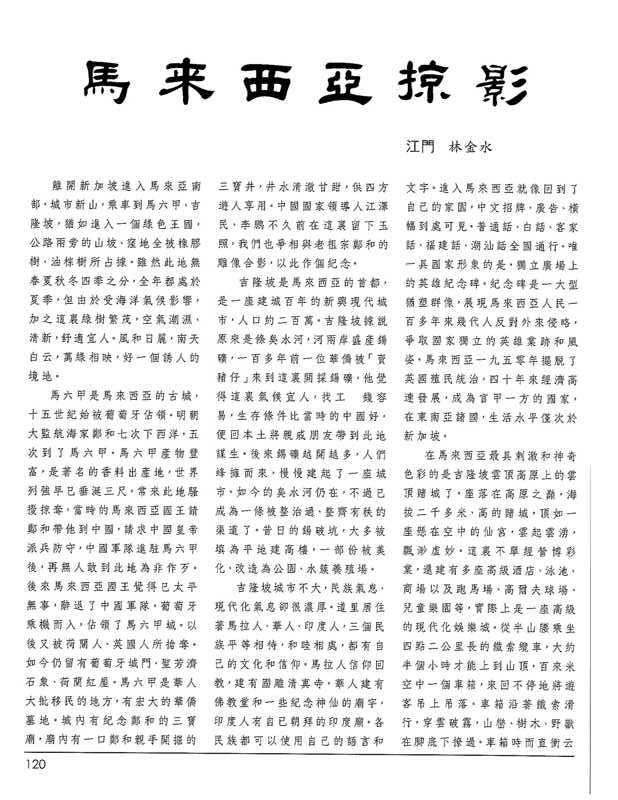 馬来西亞掠影
江門 林金水
離開新加坡進入馬來亞南
部，城市新山，乘車到馬六甲、吉
隆坡，猶如進入一個綠色王國，
公路兩旁的山坡、窪地全被橡膠
樹、油棕樹所占據。雖然此地無
春夏秋冬四季之分，全年都處於
夏季，但由於受海洋氣候影響，
加之這裏綠樹繁茂，空氣潮濕、
清新，舒適宜人。風和日麗，南天
白云，萬綠相映，好一個誘人的
境地。
馬六甲是馬來西亞的古城，
十五世紀始被葡萄牙佔領。明朝
大監航海家鄭和七次下西洋，五
次到了馬六甲。馬六甲產物豐
富，是著名的香料出產地，世界
列強早已垂涎三尺，常來此地騷
擾掠奪，當時的馬來西亞國王請
鄭和帶他到中國，請求中國皇帝
派兵防守，中國軍隊進駐馬六甲
後，再無人敢到此地為非作歹。
後來馬來西亞國王覺得已太平
無事，辭退了中國軍隊。葡萄牙
乘機而入，佔領了馬六甲城。以
後又被荷蘭人、英國人所搶奪。
如今仍留有葡萄牙城門、聖芳濟
石象、荷蘭紅屋。馬六甲是華人
大批移民的地方，有宏大的華僑
墓地。城內有紀念鄭和的三寶
廟，廟內有一口鄭和親手開掘的
三寶井，井水清澈甘甜，供四方
遊人享用。中國國家領導人江澤
民、李鵬不久前在這裏留下玉
照，我們也爭相與老祖宗鄭和的
雕像合影，以此作個紀念。
吉隆坡是馬來西亞的首都，
是一座建城百年的新興現代城
市，人口約二百萬。吉隆坡據說
原來是條臭水河，河兩岸盛產錫
礦，一百多年前一位華僑被「賣
豬仔」來到這裏開採錫礦，他覺
得這裏氣候宜人，找工 錢容
易，生存條件比當時的中國好，
便回本土將親戚朋友帶到此地
謀生。後來錫礦越開越多，人們
峰擁而來，慢慢建起了一座城
市。如今的臭水河仍在，不過已
成為一條被整治過，整齊有秩的
渠道了。昔日的錫破坑，大多被
填為平地建高樓，一部份被美
化，改造為公園、水簇養殖場。
吉隆坡城市不大，民族氣息、
現代化氣息卻很濃厚。這里居住
著馬拉人、華人、印度人，三個民
族平等相待，和睦相處，都有自
己的文化和信仰。馬拉人信仰回
教，建有圖雕清真寺，華人建有
佛教堂和一些紀念神仙的廟宇，
印度人有自己朝拜的印度廟。各
民族都可以使用自己的語言和
文字。進入馬來西亞就像回到了
自己的家園，中文招牌、廣告、橫
幅到處可見。普通話、白話、客家
話、福建話、潮汕話全國通行。唯
一具國家形象的是，獨立廣場上
的英雄紀念碑。紀念碑是一大型
猶塑群像，展現馬來西亞人民一
百多年來幾代人反對外來侵略，
爭取國家獨立的英雄業跡和風
姿。馬來西亞一九五零年擺脫了
英國殖民統治，四十年來經濟高
速發展，成為言甲一方的國家，
在東南亞諸國，生活水平僅次於
新加坡。
在馬來西亞最具刺激和神奇
色彩的是吉隆坡雲頂高原上的雲
頂賭城了。座落在高原之巔，海
拔二千多米、高的賭城，頂如一
座懸在空中的仙宮，雲起雲湧，
飄渺虛妙。這裏不單經營博彩
業，還建有多座高級酒店、泳池、
商場以及跑馬場、高爾夫球場、
兒童樂園等，實際上是一座高級
的現代化娛樂城。從半山腰乘坐
四點二公里長的鐵索纜車，大約
半個小時才能上到山頂，百來米
空中一個車箱，來回不停地將遊
客吊上吊落。車箱沿著鐵索滑
行，穿雲破霧，山巒、樹木、野獸
在腳底下撩過。車箱時而直衝云
120